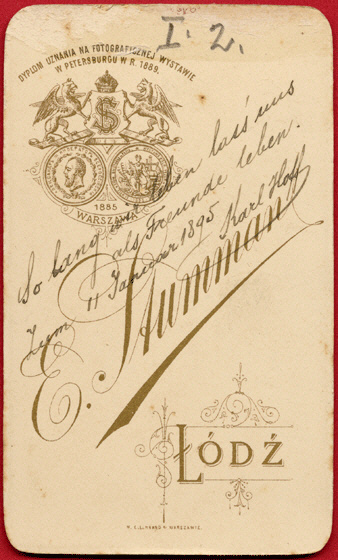 I. 2.
DYPLOM UZNANIA NA FOTOGRAFICZNEJ WYSTAWIE
W PETERSBURGU W R. 1889.
1885
WARSZAWA
So lang wir leben lass' uns
als Freunde leben.
Zum 11 Januar 1895 Karl Hoff
E. Stummann
ŁÓDŹ